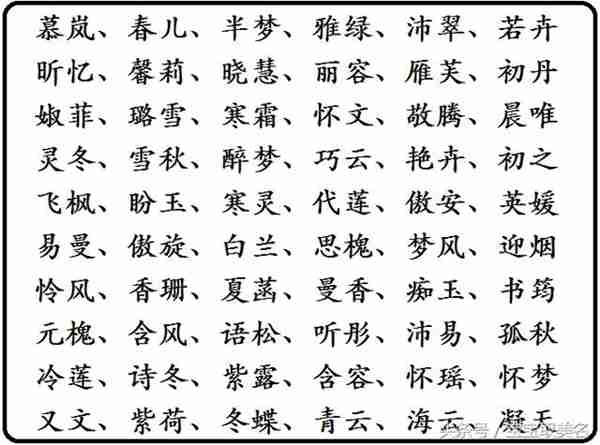 慕岚、春儿、半梦、雅绿、沛翠、若卉
昕忆、馨莉、晓慧、丽容、雁芙、初丹
婌菲、璐雪、寒霜、怀文、敬腾、晨唯
灵冬、雪秋、醉梦、巧云、艳卉、初之
飞枫、盼玉、寒灵、代莲、傲安、英媛
易曼、傲旋、白兰、思槐、梦风、迎烟
怜风、香珊、夏菡、曼香、痴玉、书筠
元槐、含风、语松、听彤、沛易、孤秋
冷莲、诗冬、紫露、含容、怀瑶、怀梦
又文、紫荷、冬蝶、青云、海云、凝天
头条号